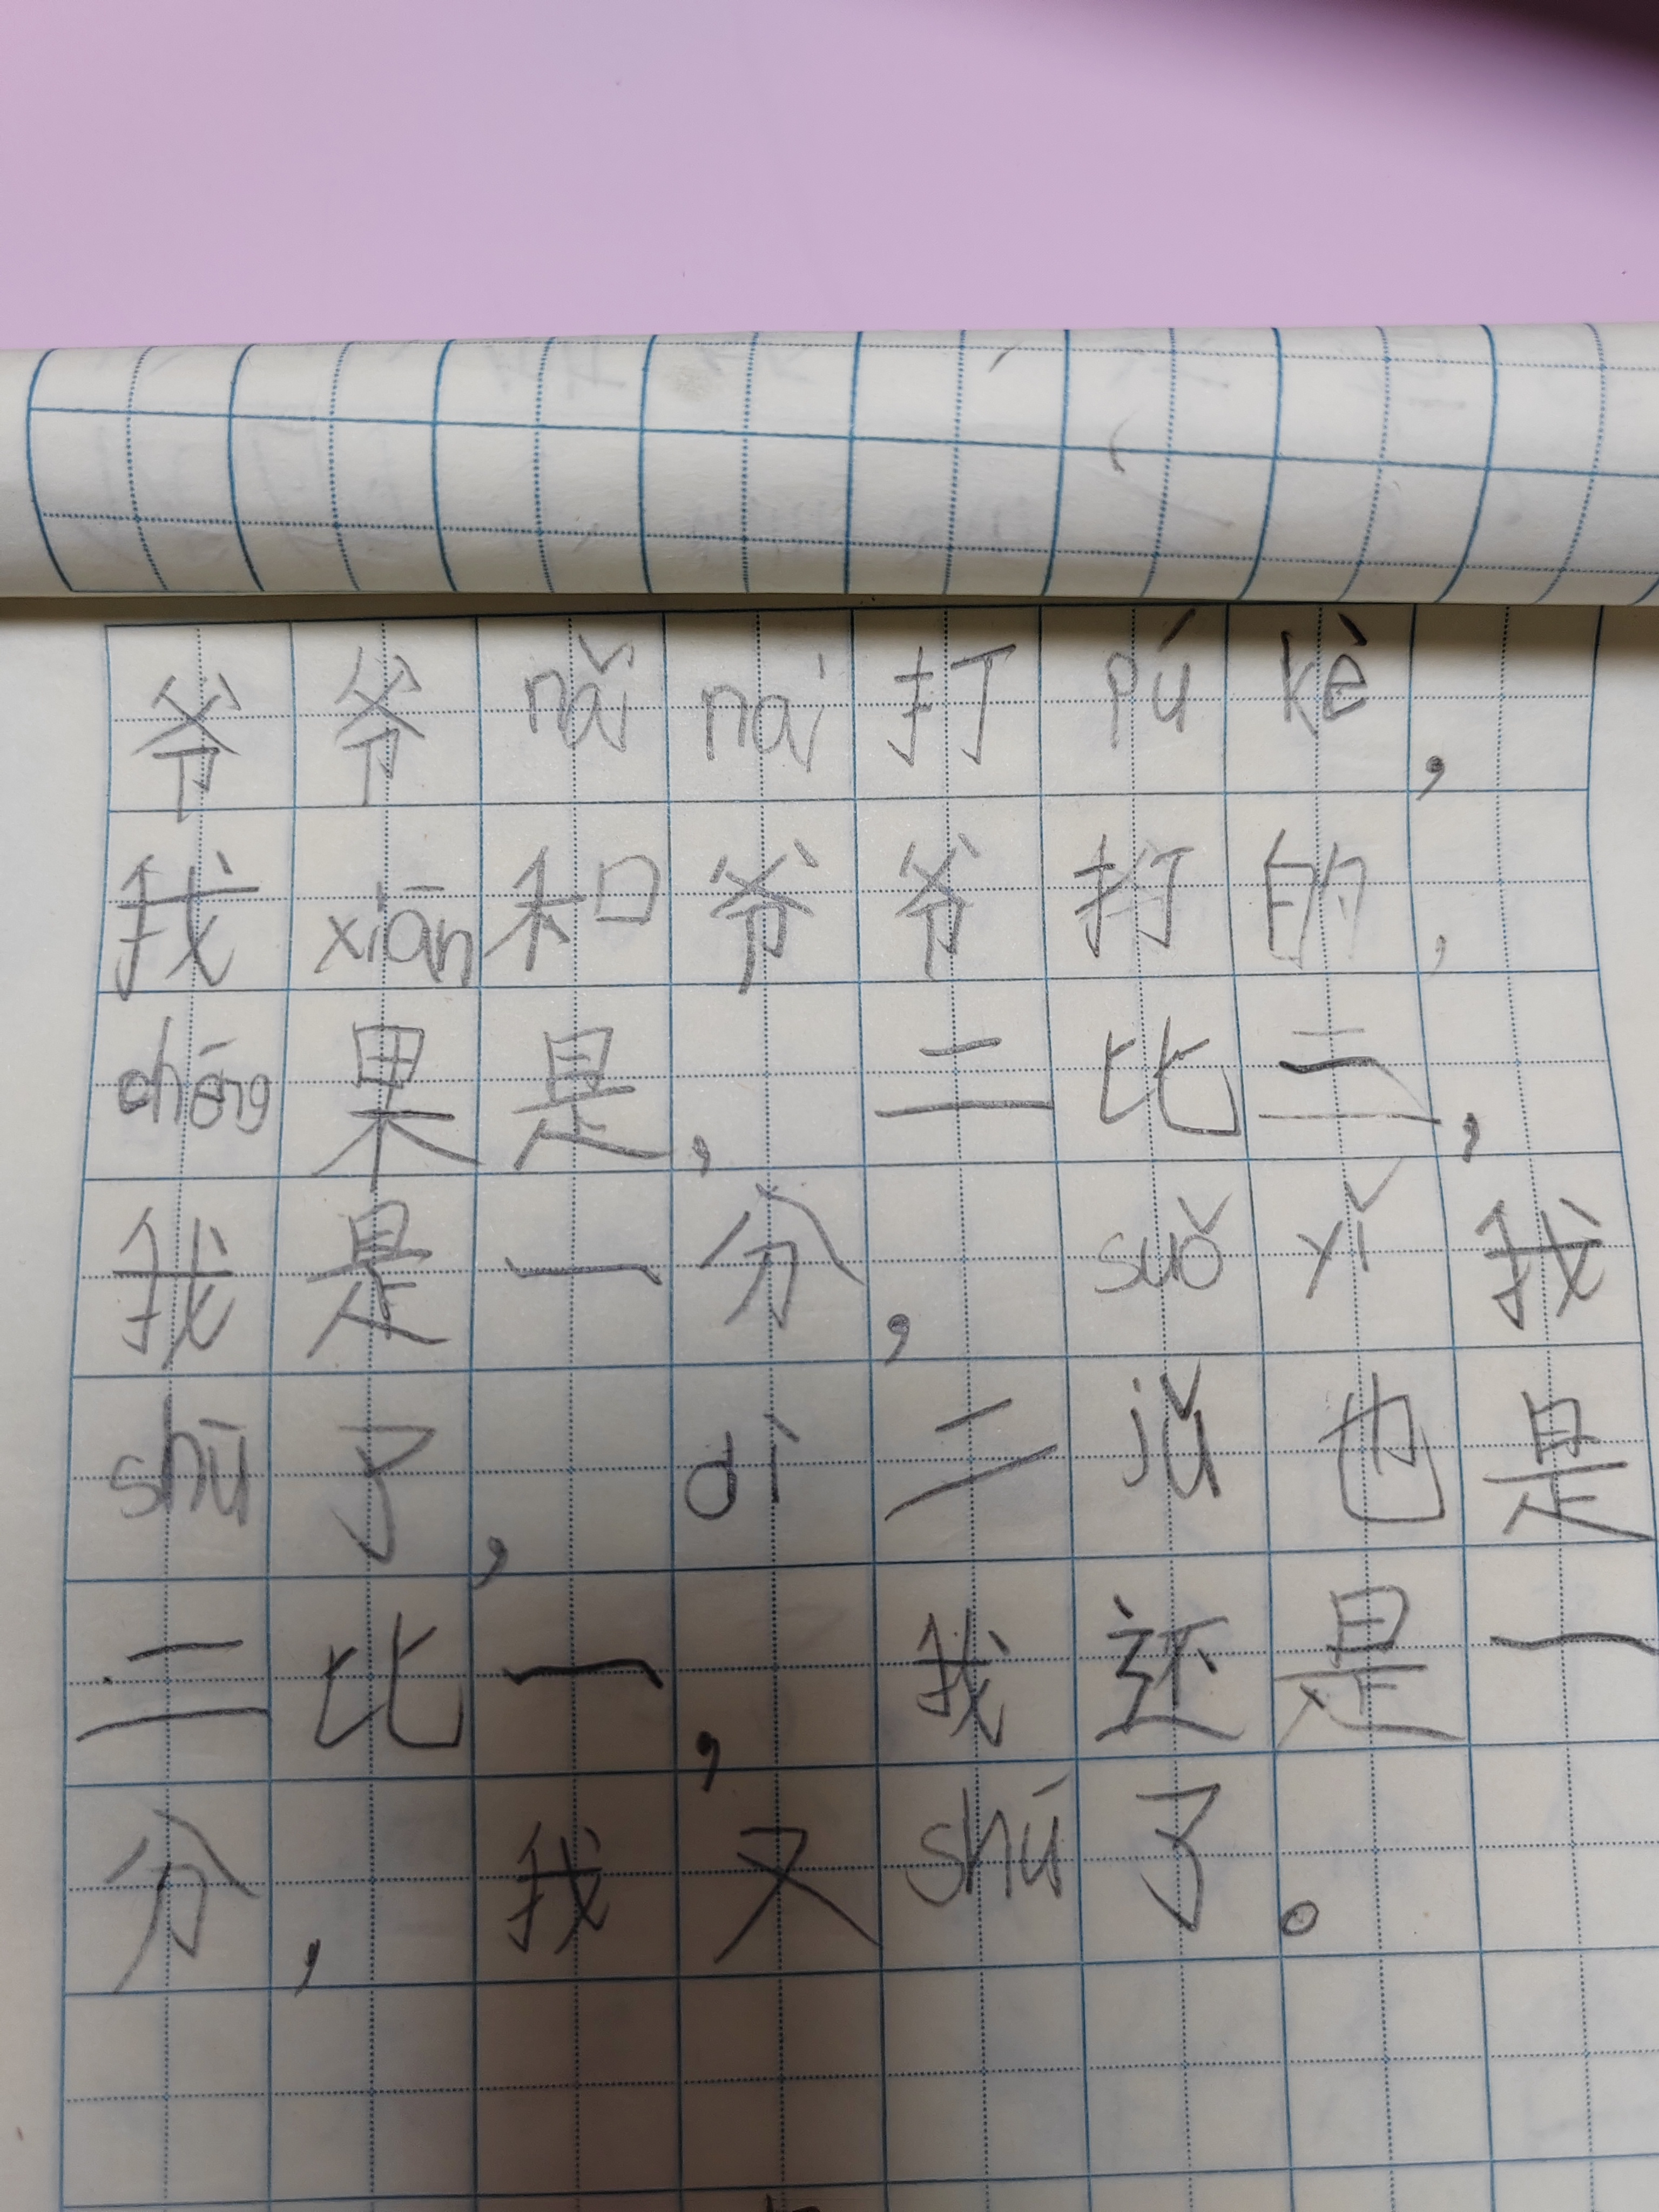 爷爷nǎi nai打pú kè，
我xiān和爷爷打的，
chēng果是，二比三，
我是一分，suǒ yǐ我
shū了，dì二jǔ也是
二比一，我还是一
分，我又shú了。